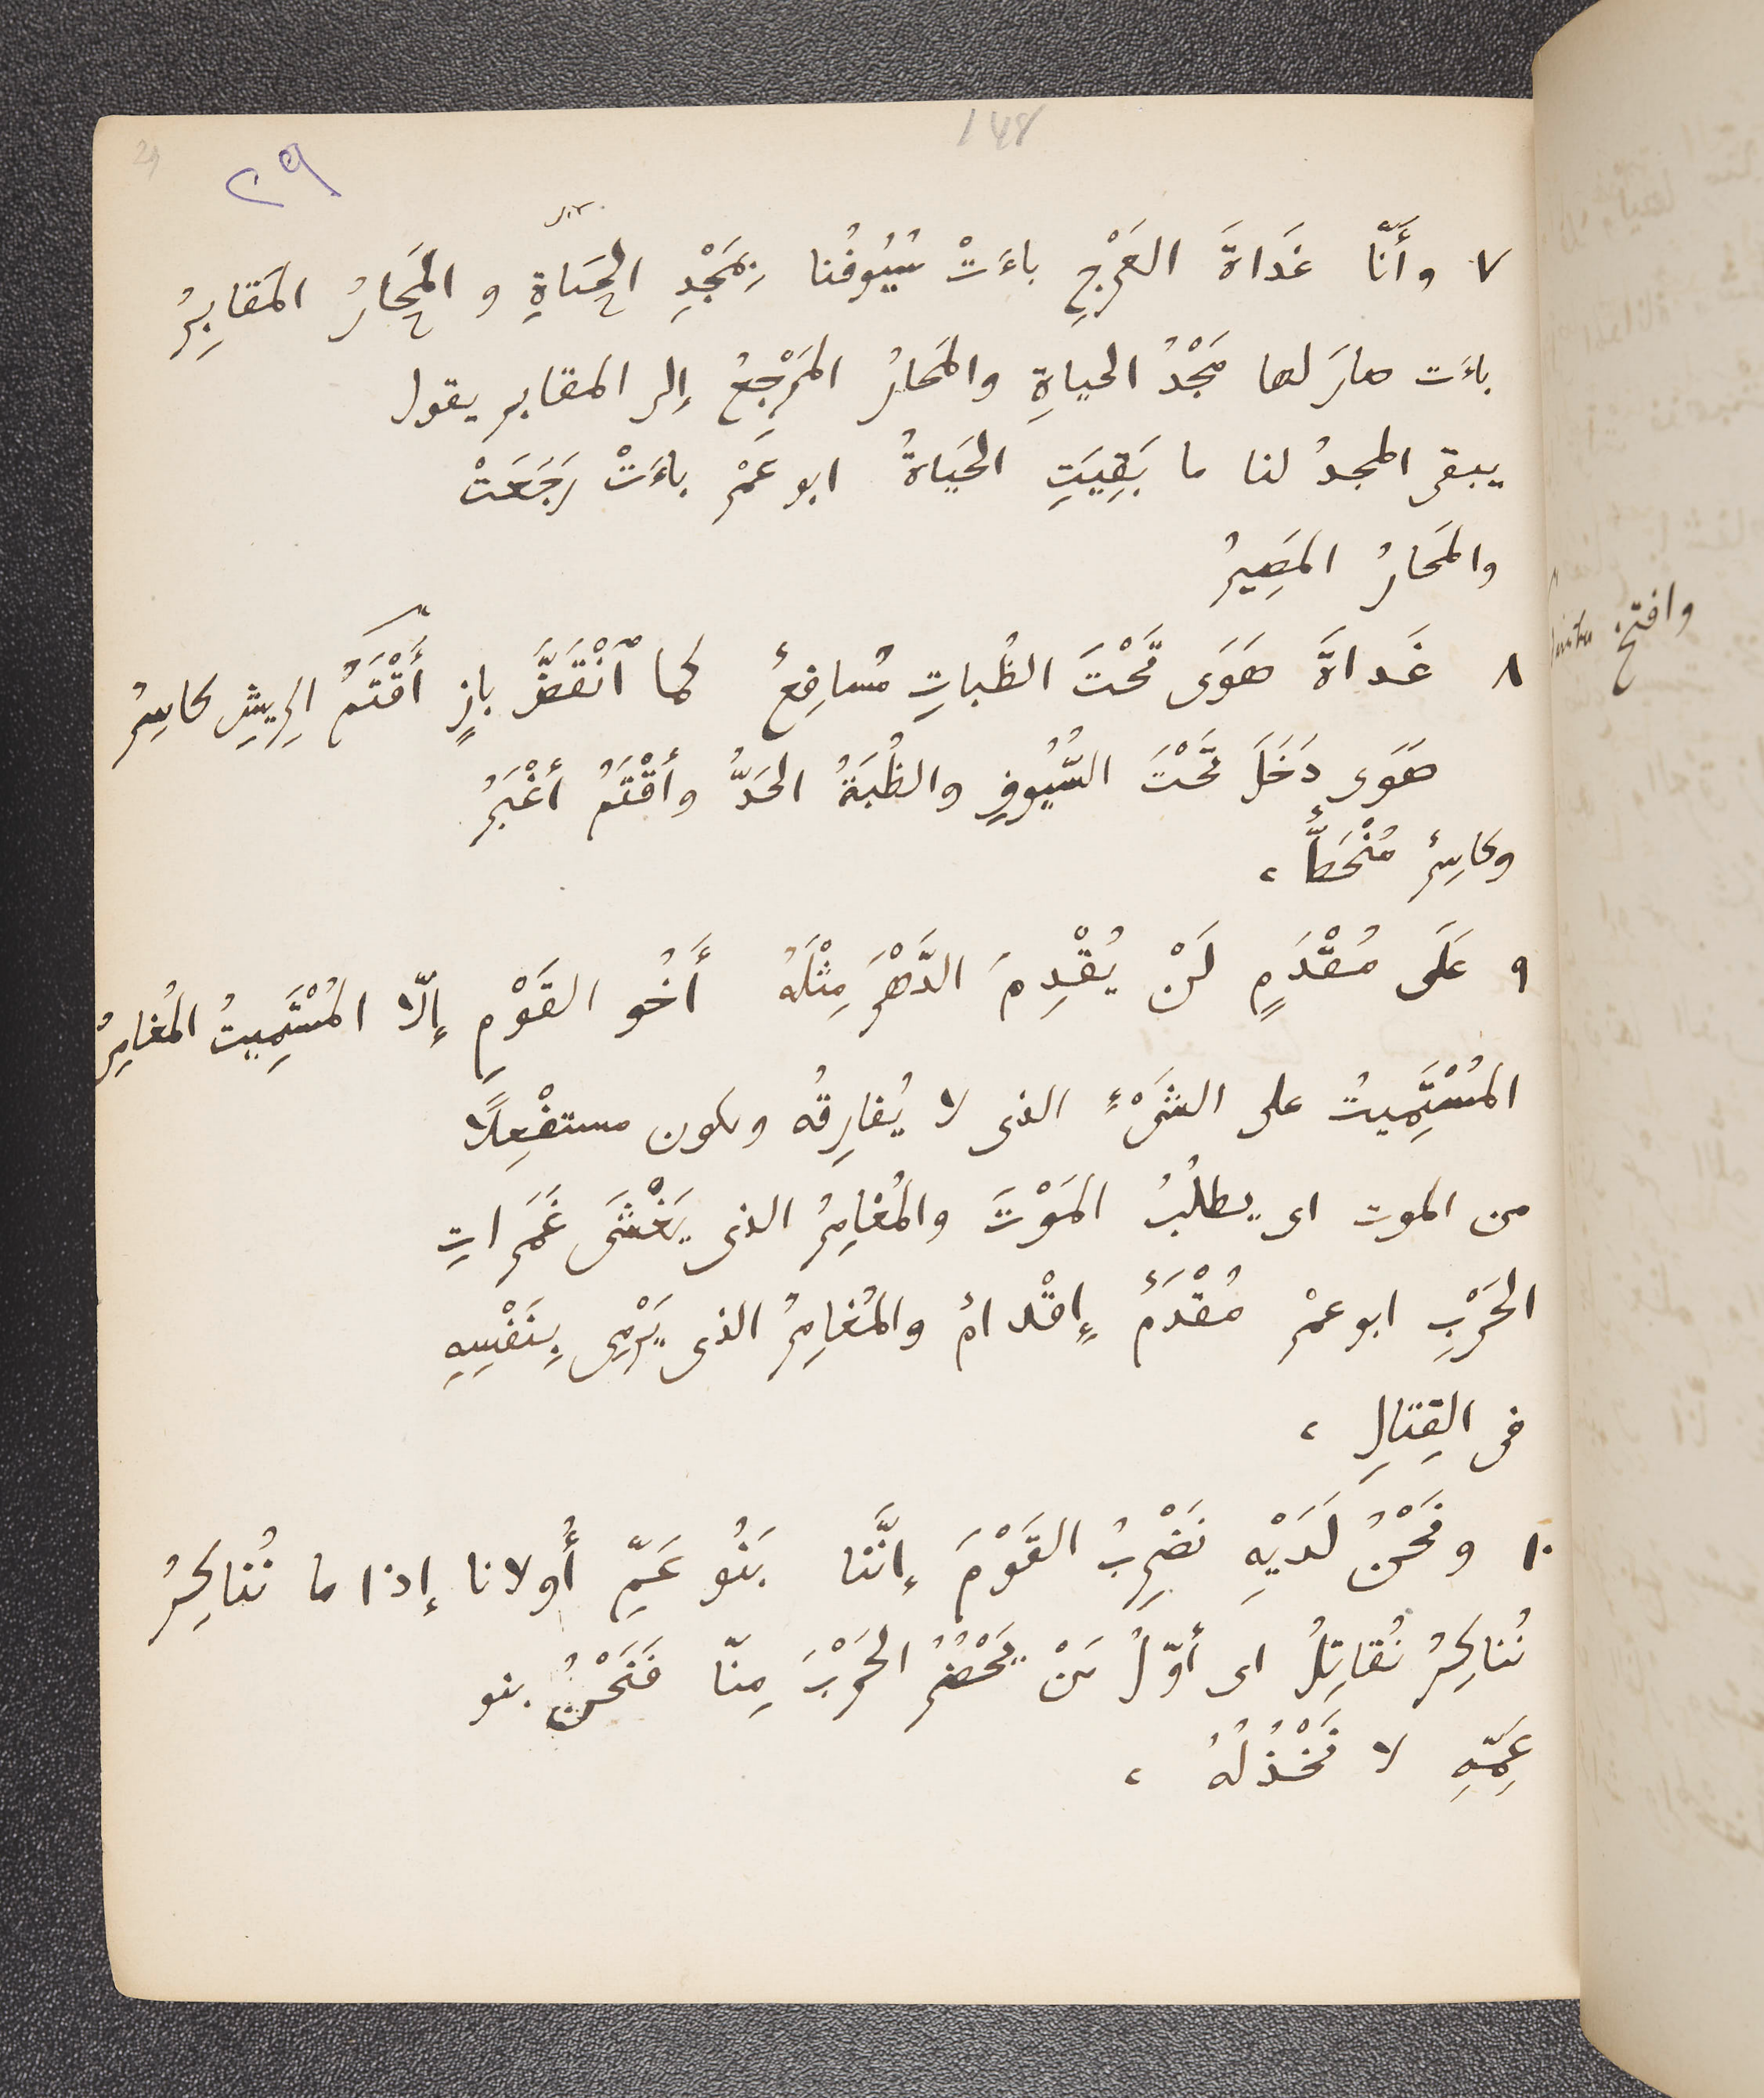 148
٢٩
29
٧ وأَنّا غَدَاةَ العَرْجِ باءَتْ سُيُوفُنا بِمَجْدِ الحَياةِ و المَحارُ المَقابِرُ
باءَت صارَ لها مَجْدُ الحياةِ والمَحارُ المَرْجِعُ إلى المقابر يقول
يبقى المجدُ لنا ما بَقِيَتِ الحَياةُ ابو عَمْرٍ باءَتْ رَجَعَتْ
والمَحارُ المَصِيرُ
٨ غَداةَ هَوَى تَحْتَ الظُباتِ مُسافِعٌ كما ٱنْقَضَّ بازٍ أَقْتَمُ الرِيشِ كاسِرُ
هَوَى دَخَلَ تَحْتَ السُّيُوفِ والظُبَةُ الحَدُّ وأَقْتَمُ أَغْبَرُ
وكاسِرٌ مُنْحَطٌّ ،
٩ عَلَى مُقْدَمٍ لَنْ يُقْدِمَ الدَّهْرَ مِثْلَهُ أَخُو القَوْمِ إلّا المُسْتَمِيتُ المُغامِرُ
المُسْتَمِيتُ على الشَىْءِ الذى لا يُفارِقُه ويكون مستفْعِلًا
من الموت اى يطلُبُ المَوْتَ والمُغامِرُ الذى يَغْشَى غَمَراتِ
الحَرْبِ ابو عمْرٍ مُقْدَمٌ إقْدامٌ والمُغامِرُ الذى يَرْمِى بِنَفْسِهِ
فى القِتالِ ،
١٠ ونَحْنُ لَدَيْهِ نَضْرِبُ القَوْمَ إنَّنا بَنُو عَمِّ أُولانا إذا ما نُناكِرُ
نُناكِرُ نُقاتِلُ اى أوّلُ مَنْ يَحْضُرُ الحَرْبَ مِنّا فَنَحْنُ بنو
عَمِّهِ لا نَخْذُلُهُ ،
وافتح